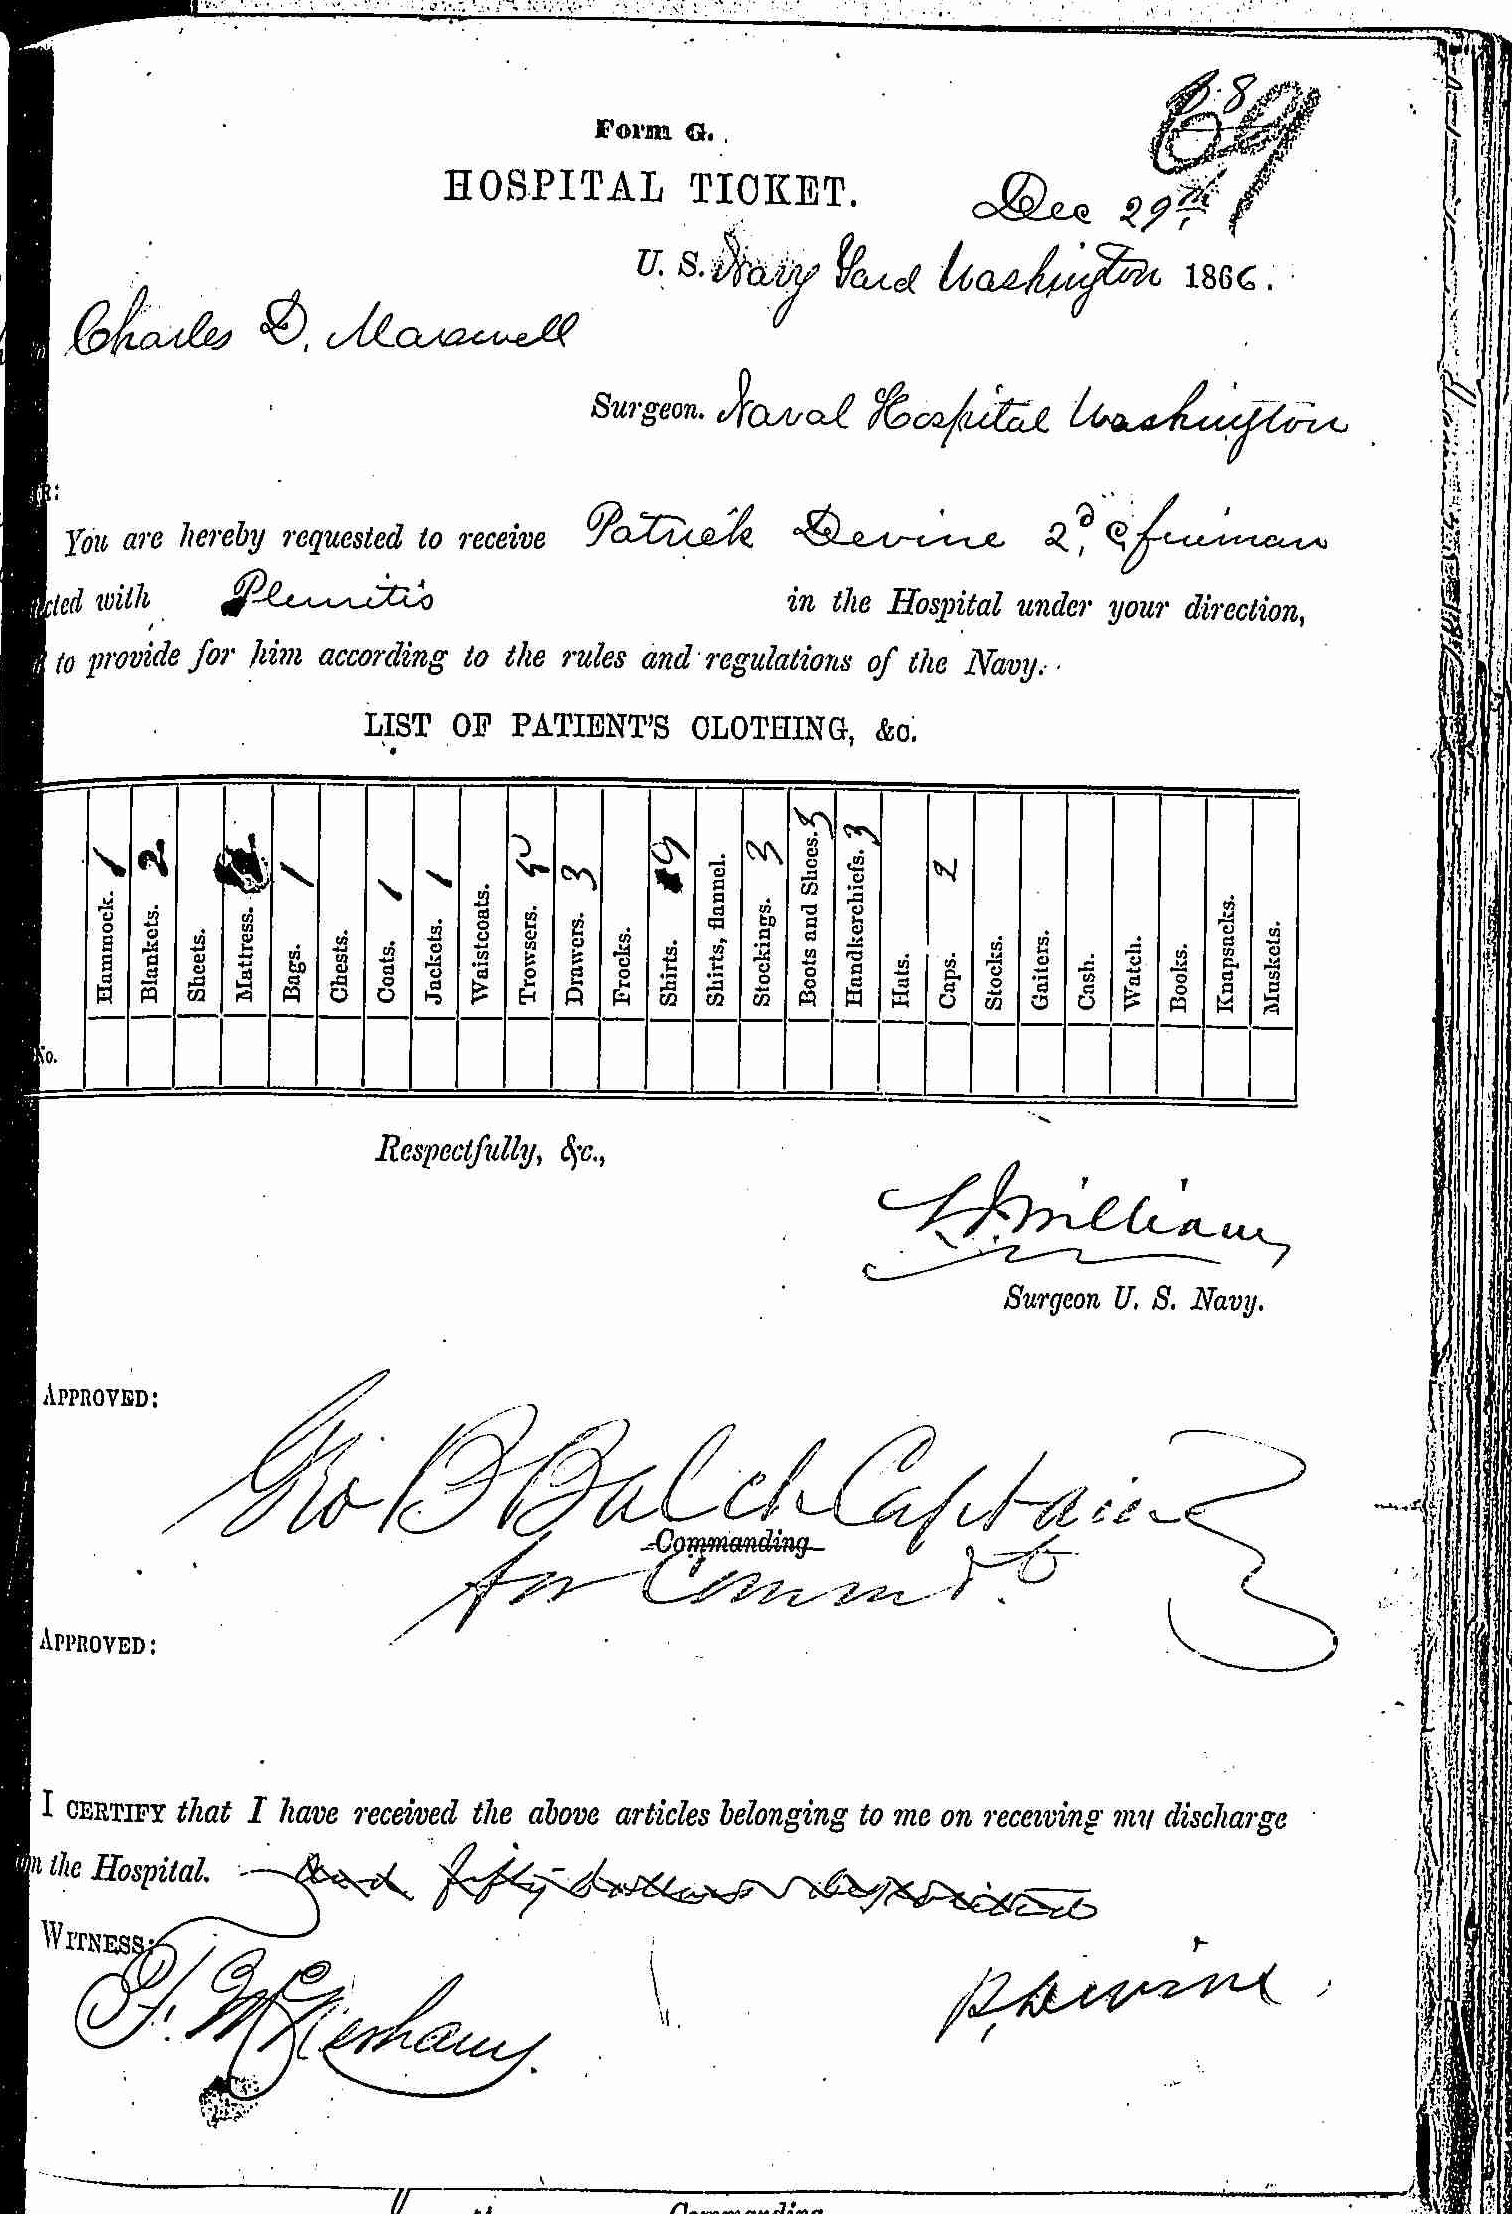 69
Form G.
HOSPITAL TICKET.
Dec 29th
U. S. Navy Yard Washington 1866.
Charles D. Maxwell
Surgeon. Naval Hospital Washington
You are hereby requested to receive Patrick Devine 2,d C, fireman
with Pleuritis in the Hospital under your direction,
to provide for him according to the rules and regulations of the Navy.
LIST OF PATIENT'S CLOTHING, &c.
Hammock. 1
Blankets. 2
Sheets.
Mattress.
Bags. 1
Chests.
Coats. 1
Jackets. 1
Waistcoats.
Trowsers. 5
Drawers. 3
Frocks.
Shirts. 9
Shirts, flannel.
Stockings. 3
Boots and Shoes. 3
Handkerchiefs. 3
Hats.
Caps. 2
Stocks.
Gaiters.
Cash.
Watch.
Books.
Knapsacks.
Muskets.
No.
Respectfully, &c.,
Williams
Surgeon U. S. Navy.
APPROVED:
Geo B Balch Captain
Commanding
for Commdt
APPROVED:
I CERTIFY that I have received the above articles belonging to me on receiving my discharge
the Hospital. And fifty dollars deposited
WITNESS:
P, Devine
Commanding